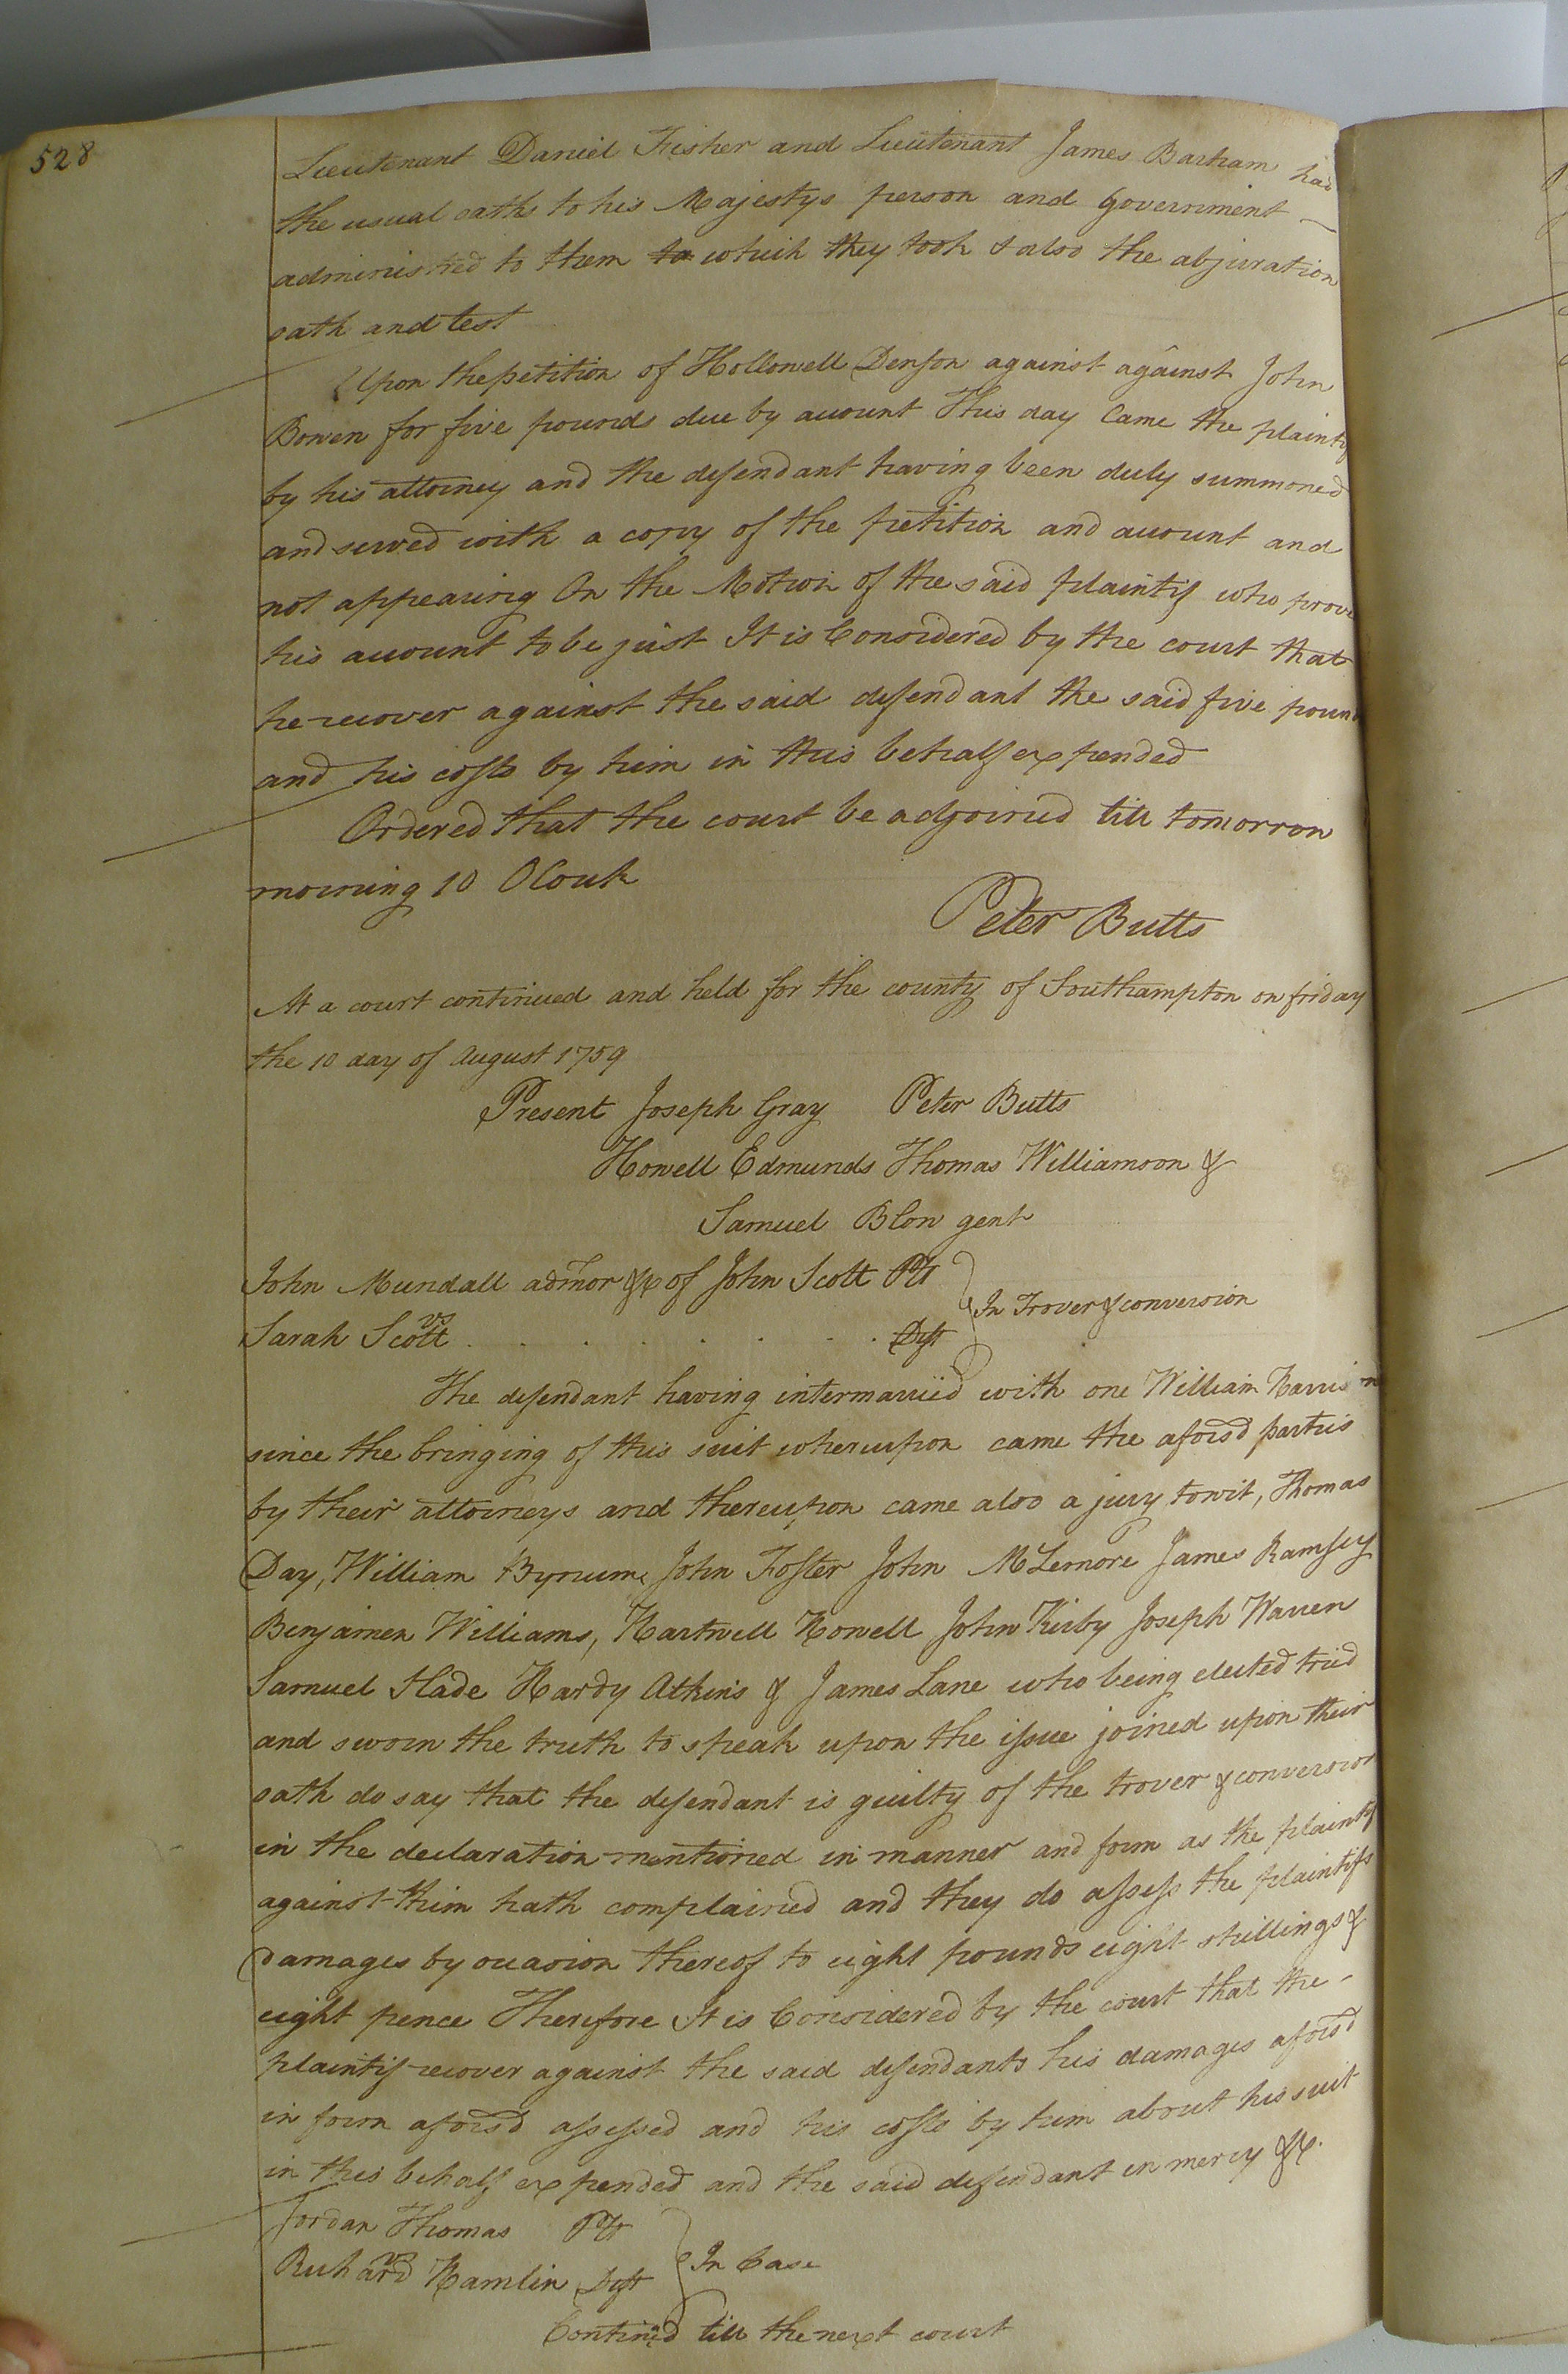 528
Lieutenant Daniel Fisher and Lieutenant James Barham had
the usual oaths to his Majestys person and Government
administred to them to which they took & also the abjuration
oath and test
Upon the petition of Hollowell Denson against against John
Bowen for five pounds due by account This day Came the plaintif
by his attorney and the defendant having been duly summoned
and served with a copy of the petition and account and
not appearing On the Motion of the said plaintif who prove
his account to be just It is Considered by the court that
he recover against the said defendant the said five pound
and his costs by him in this behalf expended
Ordered that the court be adjoirned till tomorrow
morning 10 OClock
Peter Butts
At a court continued and held for the county of Southampton on friday
the 10 day of August 1759
Present Joseph Gray Peter Butts
Howell Edmunds Thomas Williamson &
Samuel Blow gent
John Mundall admor &c of John Scott Plt
vs
In Trover & conversion
Sarah Scott . . . . . . . Deft
The defendant having intermarried with one William Harrison
since the bringing of this suit whereupon came the aforsd parties
by their attorneys and thereupon came also a jury towit, Thomas
Day, William Bynum, John Foster John McLemore James Ramsey
Benjamen Williams, Hartwell Howell John Kirby Joseph Warren
Samuel Slade Hardy Atkins & James Lane who being elected tried
and sworn the truth to speak upon the issue joined upon their
oath do say that the defendant is guilty of the trover & conversion
in the declaration mentioned in manner and form as the plaintif
against him hath complained and they do assess the plaintifs
damages by occasion thereof to eight pounds eight shillings &
eight pence Therefore It is Considered by the court that the
plaintif recover against the said defendants his damages aforsd
in form aforsd assessed and his costs by him about his suit
in this behalf expended and the said defendant in mercy &c.
Jordan Thomas Plt
vs
In Case
Richard Hamlin Deft
Continued till the next court